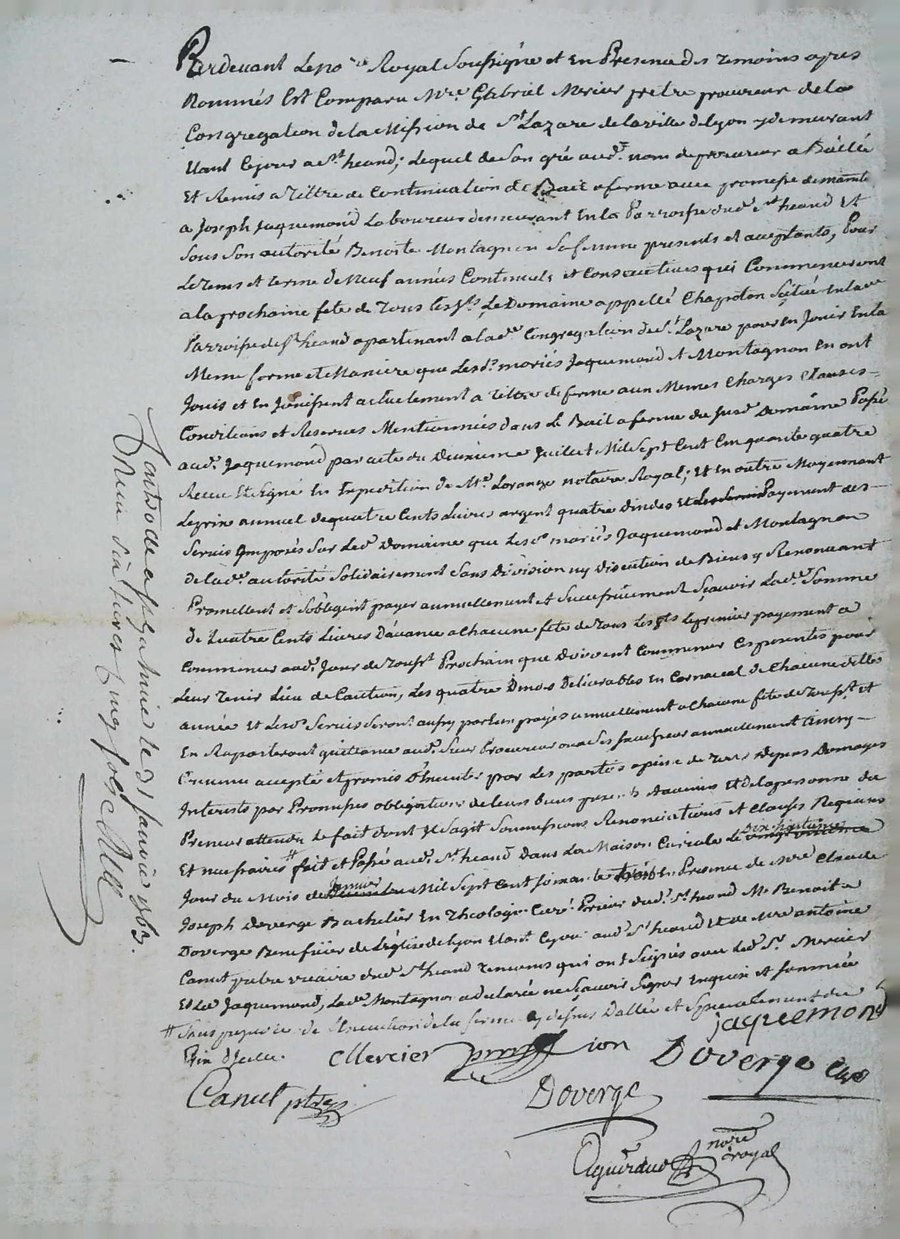 Pardevant Le no.re Royal Soussigné et En Presence des temoins apres
Nommés Est Comparu Mre. Gabriel Mercier pretre procureur de la
Congregation de la Mission de St. Lazare de la ville de Lyon y demeurant
Etant Ce jour a St. heand; Lequel de Son gré aud. nom de procureur a Baillé
Et Remis a tiltre de Continuation de Bail a ferme avec promesse de maintenir
a Joseph Jaquemond Laboureur demeurant En la Parroisse dud. St. heand Et
Sous Son autorité Benoite Montagnon Sa femme presents et aceptants, Pour
Le tems et terme de Neuf années Continuels et Consecutives qui Commenceront
a la prochaine fete de Tous les Sts. Le Domaine appellé Chapoton Scitué En lad.
Parroisse de St. heand apartenant a lad. Congregation de St. Lazare pour En Jouir En la
Meme forme et Maniere que Lesd. mariés Jaquemond et Montagnon En ont
Jouis et En Jouissent actuelement a tiltre de ferme aux Memes Charges Clauses
Conditions et Reserves Mentionnées dans Le Bail a ferme du Susd. Domaine Passé
aud. Jaquemond par acte du Deuxieme Juillet Mil Sept Cent Cinquante quatre
Recue Et Signé En Expedition de Me. Lorange notaire Royal; Et En outre Moyennant
Le prix annuel de quatre Cents Livres argent quatre dindes Et Payment des
Servis Imposés Sur Led. Domaine que Lesd. mariés Jaquemond et Montagnon
de lad. autorité Solidairement Sans Division ny Discution de Biens y Renonceant
Promettent et S'obligent payer annuellement et Successivement Sçavoir Lad. Somme
de Quatre Cents Livres D'avance a Chacune fete de Tous Les Sts Le premier payement a
Commencer aud. Jour de Tousst. Prochain que Doivent Commencer Ces presentes pour
Leur Tenir Lieu de Caution, Les quatre Dindes Delivrables En Carnaval de Chacune
année Et Lesd. Servis Seront aussy par Eux payés annuellement a Chacune fete de Tousst. Et
En Raporteront quittance aud. Sieur Procureur ou a Ses Successeurs annuellement ainsy
Convenu accepté et promis D'Executer par Les parties a peine de Tous Depens Domages
Interets par Promesses obligations de Leurs biens presents Et avenirs Et de la personne du
Preneur attendu le fait dont Il S'agit Soumissions Renonciations et Clauses Requises
Et necessaires # fait et Passé aud. St. heand Dans La Maison Curiale Le dix huitieme
Jour du Mois de Janvier Mil Sept Cent Soixante trois En Presence de Mre Claude
Joseph Doverge Bachelier En Theologie Curé Prieur dud. St. heand Me Benoit
Doverge Beneficier de L'Eglise de Lyon Etant Ce jour aud. St heand Et de Mre antoine
Canut pretre vicaire dud. St. heand temoins qui ont Signés avec Led. Sr. Mercier
Et Led Jaquemond, Lad. Montagnon a declaré ne Sçavoir Signer Enquise et Sommée
# Sans prejudice de L'Execution de la ferme cy dessus Dattée et Specialement du
Prix D'icelle.
jaquemond
Mercier
Doverge Curé
Canut ptre
Doverge
nore royal
Controllé a St galmier le 31 janvier 1763.